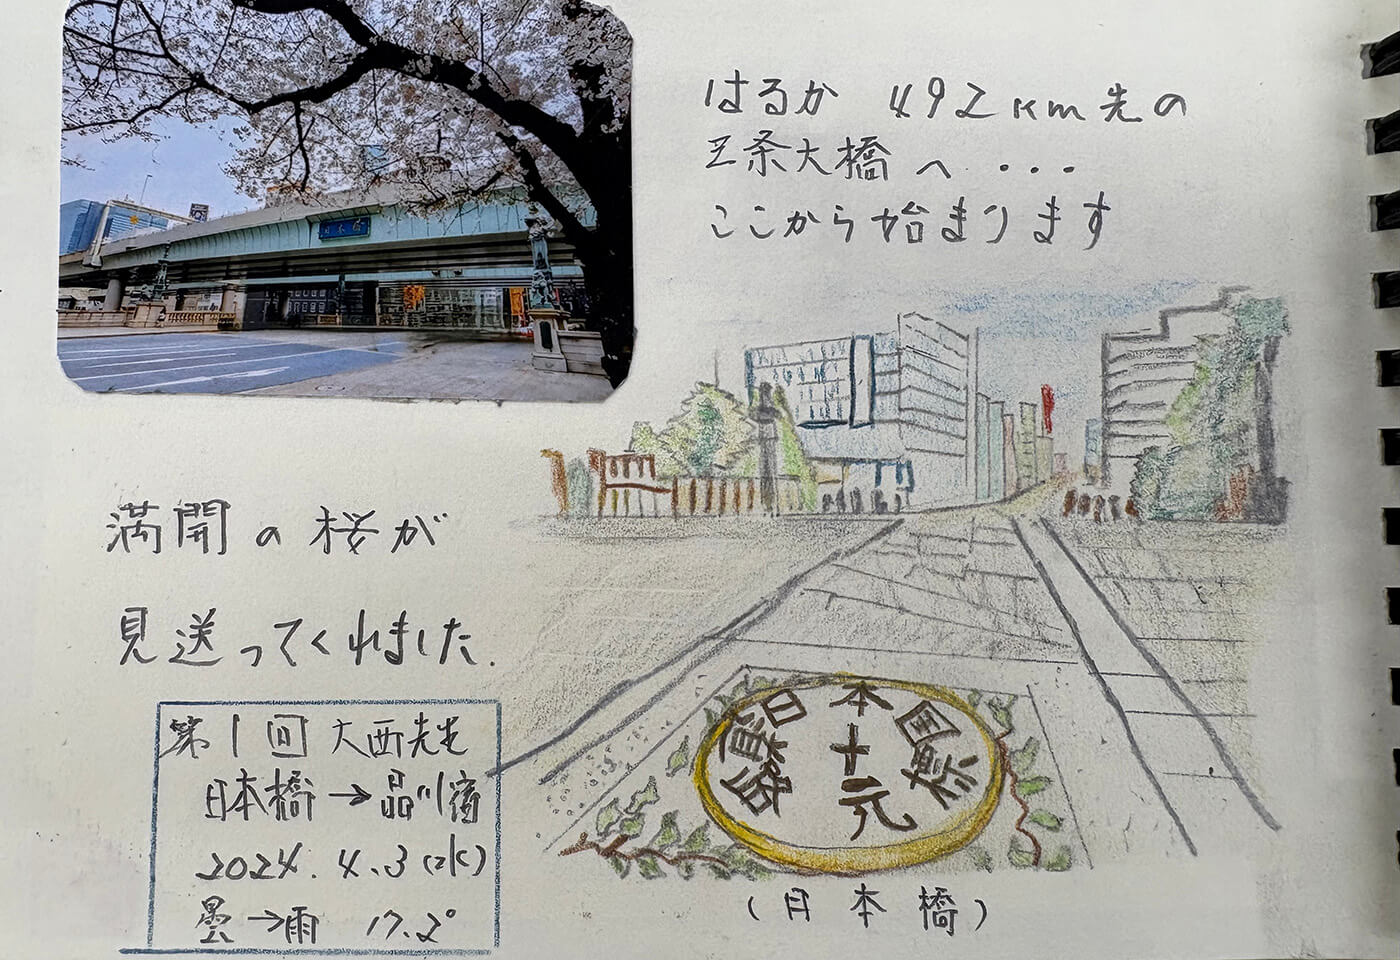 日本橋
はるか 492km先の
三条大橋へ・・・
ここから始まります
満開の桜が
見送ってくれました.
第1回 大西先生
日本橋→品川宿
2024.4.3(水)
曇→雨 17.2°
日本国
道路元標
(日本橋)